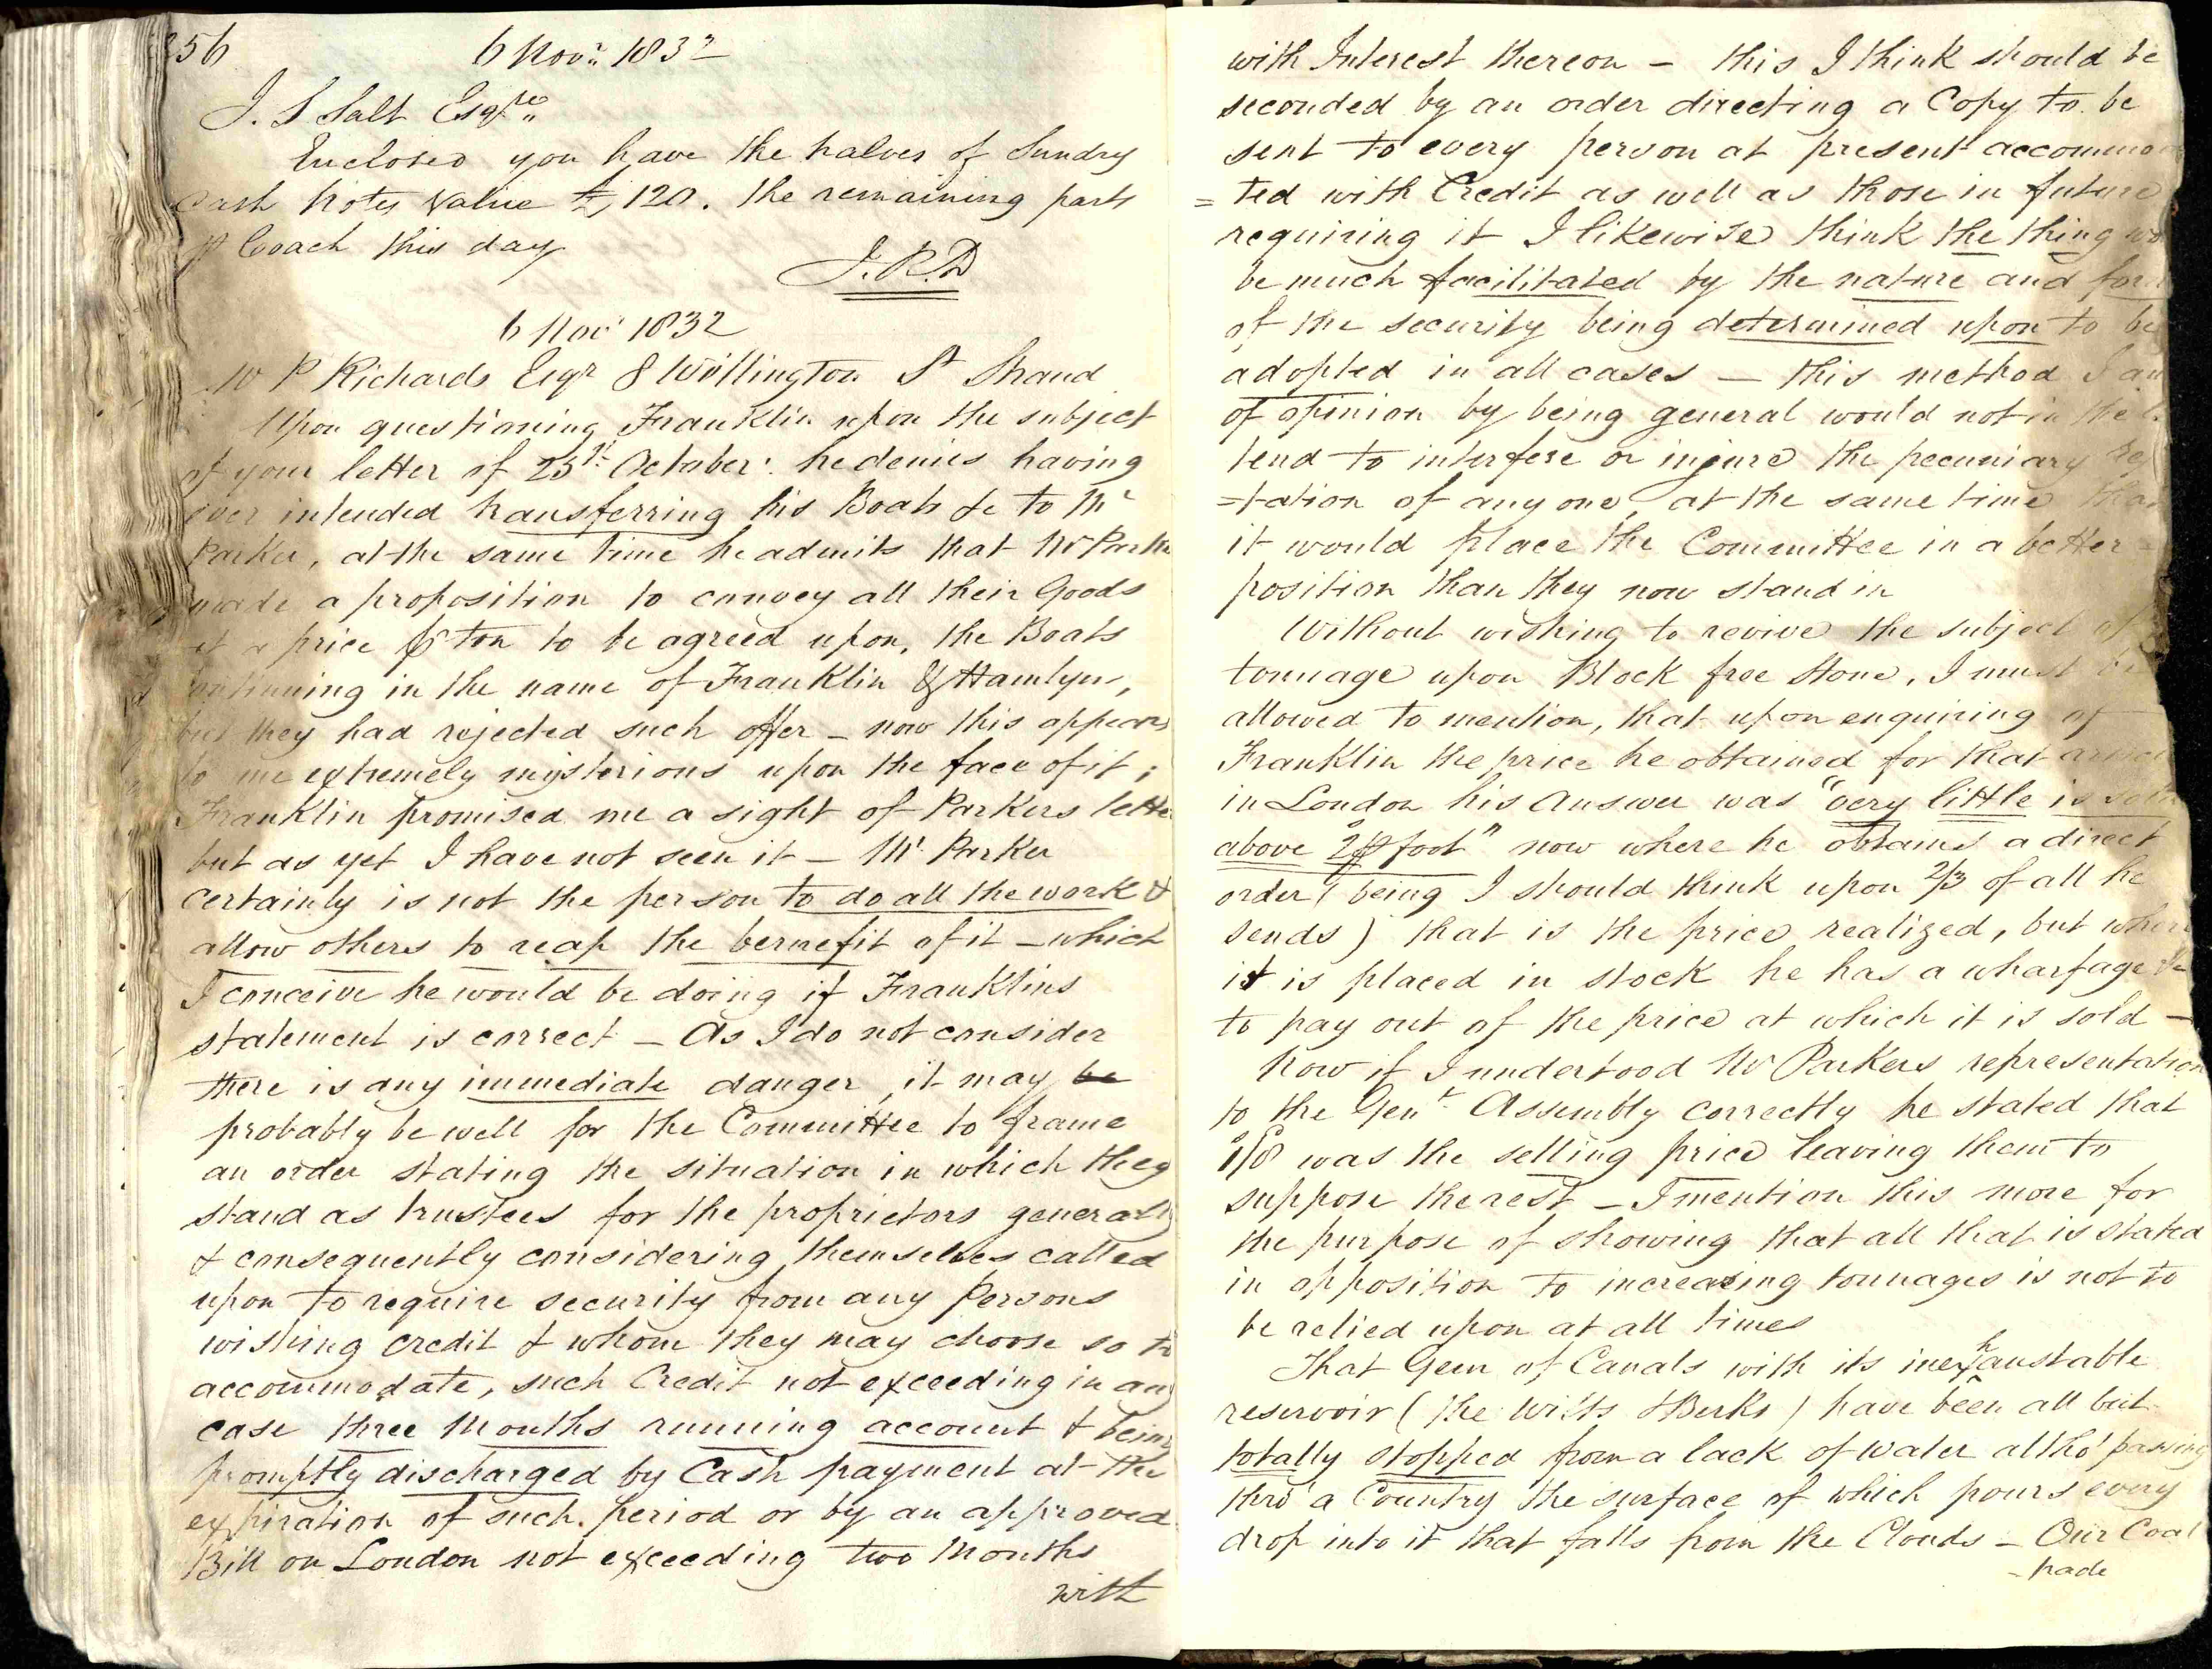 356
6 Novr 1832
J. S Salt Esqre
Enclosed you have the halves of Sundry
Cash Notes value £120. the remaining parts
⅌ Coach this day
J.R.D
6 Nov 1832
W P Richards Esqr 8 Wellington St Strand
Upon questioning Franklin upon the subject
of your letter of 25th October he denies having
ever intended transferring his Boats &c to Mr
Parker, at the same time he admits that Mr Parker
made a proposition to convey all their Goods
at a price ⅌ ton to be agreed upon, the Boats
continuing in the name of Franklin & Hamlyn,
but they had rejected such offer — now this appears
to me extremely mysterious upon the face of it;
Franklin promised me a sight of Parkers letter
but as yet I have not seen it — Mr Parker
certainly is not the person to do all the work &
allow others to reap the bennefit of it — which
I conceive he would be doing if Franklins
statement is correct — As I do not consider
there is any immediate danger, it may be
probably be well for the Committee to frame
an order stating the situation in which they
stand as trustees for the proprietors generally
& consequently considering themselves called
upon to require security from any Persons
wishing credit & whom they may choose so to
accommodate, such Credit not exceeding in any
case three Months running account & being
promptly discharged by Cash payment at the
expiration of such period or by an approved
Bill on London not exceeding two Months
with
with Interest thereon — this I think should be
seconded by an order directing a Copy to be
sent to every person at present accommo
=ted with Credit as well as those in future
requiring it I likewise think the thing
be much facilitated by the nature and form
of the security being determined upon to be
adopted in all cases — this method I am
of opinion by being general would not in the
tend to interfere or injure the pecuniary
=tation of any one, at the same time that
it would place the Committee in a better
position than they now stand in
Without wishing to revive the subject of
tonnage upon Block free Stone, I must be
allowed to mention, that upon enquiring of
Franklin the price he obtained for that
in London his Answer was "very little is sold
above 2/ ⅌ foot" now where he obtains a direct
order (being I should think upon 2/3 of all he
sends) that is the price realized, but when
it is placed in stock he has a wharfage &c
to pay out of the price at which it is sold —
Now if I understood Mr Parkers representation
to the Genl Assembly correctly he stated that
1/8 was the selling price leaving them to
suppose the rest — I mention this more for
the purpose of showing that all that is stated
in opposition to increasing tonnages is not to
be relied upon at all times
That Gem of Canals with its inexhaustable
reservoir (the Wilts & Berks) have been all but
totally stopped from a lack of water altho' passing
thro' a Country the surface of which pours every
drop into it that falls from the Clouds — Our Coal
trade